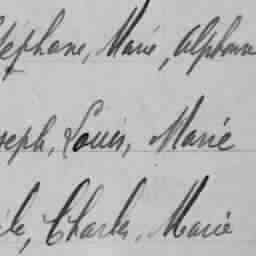 téphane, Marie, Alphonse
seph, Louis, Marie
ile, Charles, Marie